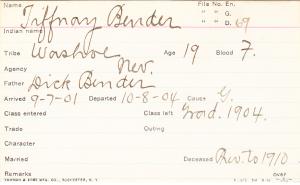 Name Tiffnay Bender File No. En.
" " G.
Indian name " " D. 69
Tribe Washoe Age 19 Blood F.
Agency Nev.
Father Dick Bender
Arrived 9-7-01 Departed 10-8-04 Cause G.
Class entered Class left Grad. 1904.
Trade Outing
Character
Married Deceased Prev. to 1910